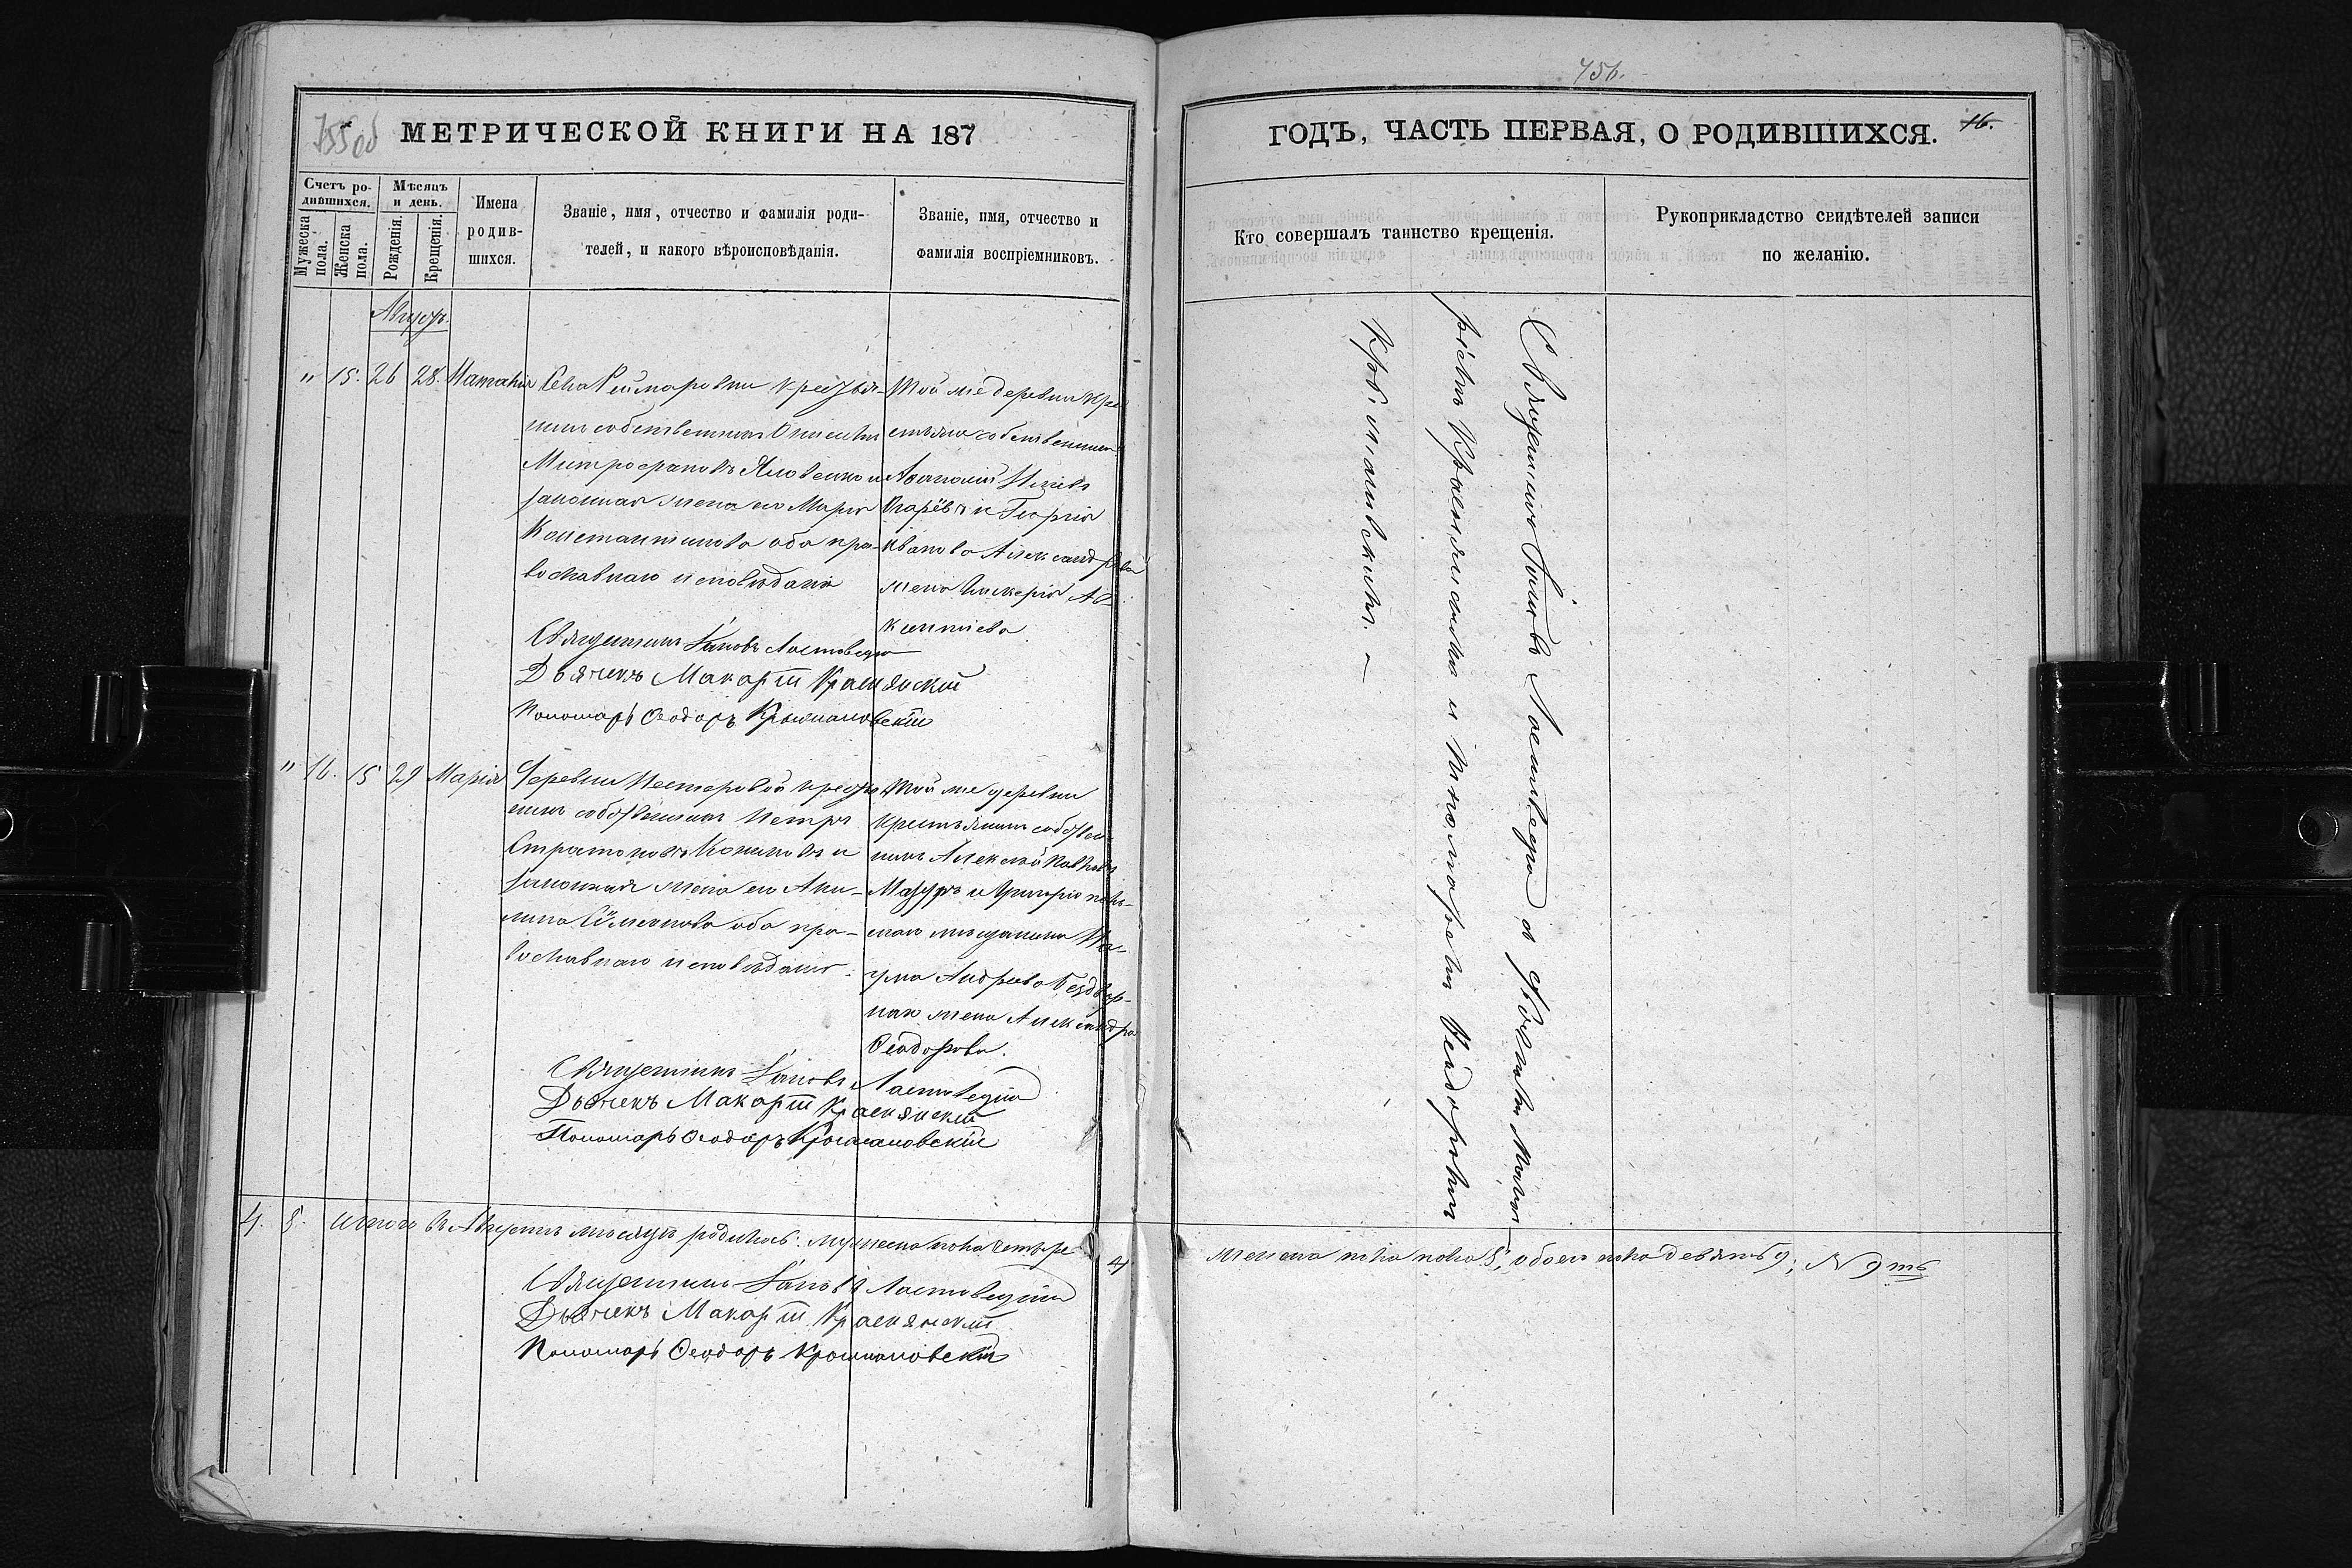 755 об
МЕТРИЧЕСКОЙ КНИГИ НА 187
Счетъ ро-
дившихся.
Мужеска
пола.
Женска
пола.
Мѣсяцъ
и день.
Рожденія.
Крещенія.
Имена
родив-
шихся.
Званіе, имя, отчество и фамилія роди-
телей, и какого вѣроисповѣданія.
Званіе, имя, отчество и
фамилія воспріемниковъ.
Августъ.
" 15. 26 28. Наталія
Села крестья-
нинъ собственникъ
Митрофановъ Яловенко и
законная жена его Марія
Константинова оба пра-
вославнаго исповѣданія
Той же деревни кре
стьянинъ собственникъ
Афанасій
и Георгія
Иванова Александрова
жена Гликерія
Священникъ Іаковъ Ластовецкій
Дьячекъ Макарій Краснянскій
Пономарь Ѳеодоръ Крыжановскій
" 16. 15 29 Марія
Деревни Нестеровой крестья
нинъ собственникъ Петръ
Стратоновъ и
законная жена его Аки-
лина оба пра-
вославнаго исповѣданія.
Той же деревни
крестьянинъ собствен
никъ Алексѣй Павловъ
Мазуръ и
мѣщанина На-
ума Андреева
жена Александра
Ѳеодорова.
Священникъ Іаковъ Ластовецкій
Дьячекъ Макарій Краснянскій
Пономарь Ѳеодоръ Крыжановскій
4. 5. Итого въ Августѣ мѣсяцѣ родилось: мужеска пола четыре 4
Священникъ Іаковъ Ластовецкій
Дьячекъ Макарій Краснянскій
Пономарь Ѳеодоръ Крыжановскій
756.
ГОДЪ, ЧАСТЬ ПЕРВАЯ, О РОДИВШИХСЯ.
16.
Кто совершалъ таинство крещенія.
Рукоприкладство свидѣтелей записи
по желанію.
Священникъ Іаковъ Ластовецкій съ дьячкомъ Мака-
ріемъ Краснянскимъ и пономаремъ Ѳеодоромъ
Крыжановскимъ. —
женска пола 5, обоего пола девять 9; N 9ть